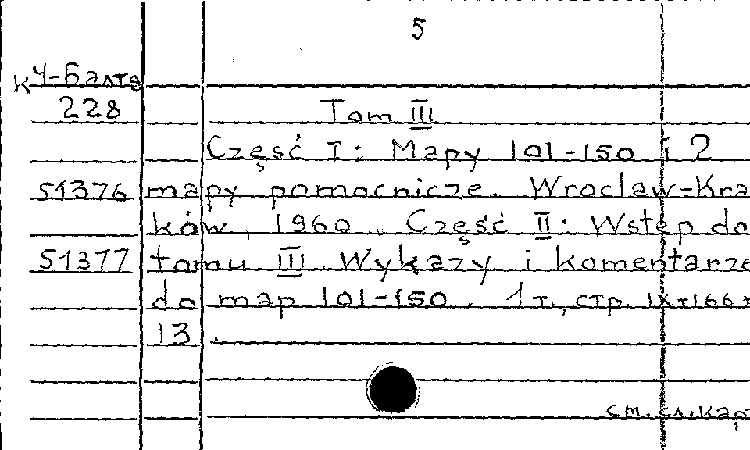 5
К Ч-Балтв
228 Tom III
Część I: Mapy 101-150 i 2
51376 mapy pomocnicze. Wroclaw-Kra
ków, 1960. Część II: Wstęp do
51377 tomu III. Wykazy i komentarze
do map 101-150. 1 т., стр. IX+166+
13.
см.сл.кар